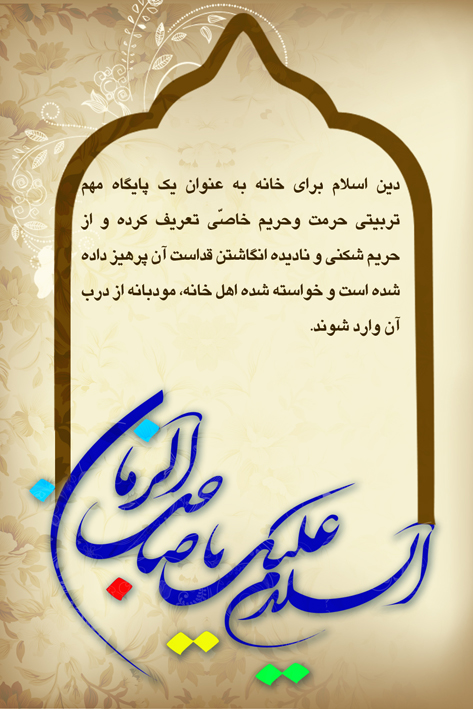 دین اسلام برای خانه به عنوان یک پایگاه مهم
تربیتی حرمت وحریم خاصّی تعریف کرده و از
حریم شکنی و نادیده انگاشتن قداست آن پرهیز داده
شده است و خواسته شده اهل خانه، مودبانه از درب
آن وارد شوند.
السلام علیک یا صاحب الزمان